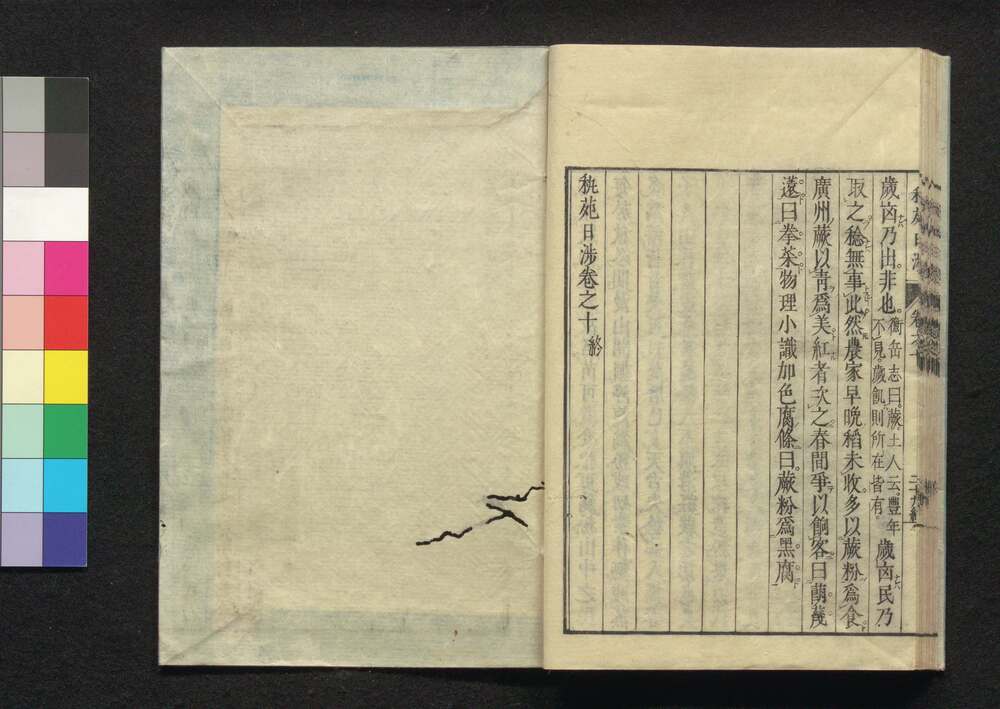 歲卤乃出非也衡岳志曰蕨土人云豐年
不見歲飢則所在皆有歲卤民乃
取之稔無事此然農家早晩稻未收多以蕨粉爲食
廣州蕨以青爲美紅者次之春間爭以餉客曰萌蕨
遠曰拳菜物理小識加色腐條曰蕨粉爲黑腐
秇苑日涉卷之十終